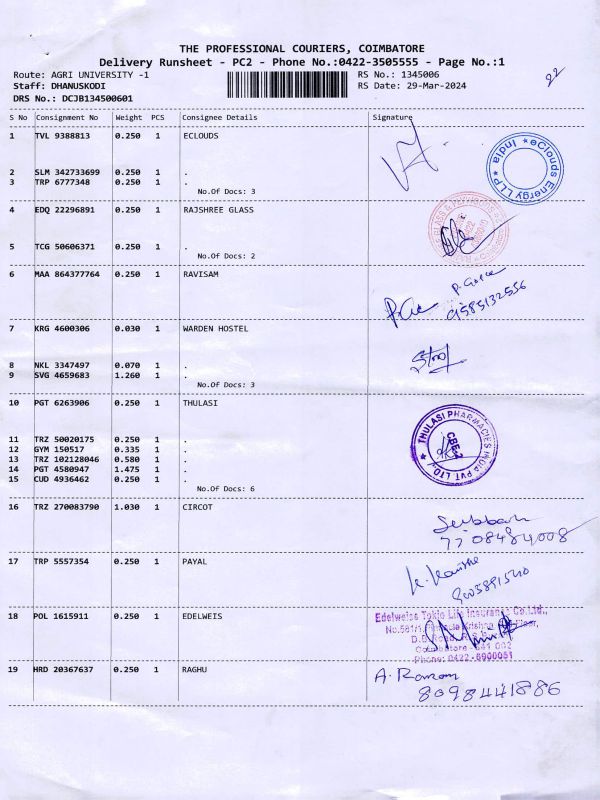 THE PROFESSIONAL COURIERS, COIMBATORE
Delivery Runsheet - PC2 - Phone No.:0422-3505555 - Page No.:1
Route: AGRI UNIVERSITY -1 RS No.: 1345006
Staff: DHANUSKODI RS Date: 29-Mar-2024
DRS No.: DCJB134500601
22
S No Consignment No Weight PCS Consignee Details Signature
1 TVL 9388813 0.250 1 ECLOUDS
eClouds Energy LLP * India *
2 SLM 342733699 0.250 1 .
3 TRP 6777348 0.250 1 .
No.Of Docs: 3
4 EDQ 22296891 0.250 1 RAJSHREE GLASS
5 TCG 50606371 0.250 1 .
No.Of Docs: 2
6 MAA 864377764 0.250 1 RAVISAM
9585132556
7 KRG 4600306 0.030 1 WARDEN HOSTEL
8 NKL 3347497 0.070 1 .
9 SVG 4659683 1.260 1 .
No.Of Docs: 3
10 PGT 6263906 0.250 1 THULASI
THULASI PHARMACIES INDIA PVT. LTD. * CBE-2
11 TRZ 50020175 0.250 1 .
12 GYM 150517 0.335 1 .
13 TRZ 102128046 0.580 1 .
14 PGT 4580947 1.475 1 .
15 CUD 4936462 0.250 1 .
No.Of Docs: 6
16 TRZ 270083790 1.030 1 CIRCOT
7708484008
17 TRP 5557354 0.250 1 PAYAL
18 POL 1615911 0.250 1 EDELWEIS
Edelweiss Tokio Life Insurance Co.Ltd.,
No.581/1, Krishna Floor,
D.B. Road,
Coimbatore - 641 002
Phone: 0422-6900051
19 HRD 20367637 0.250 1 RAGHU
8098441886